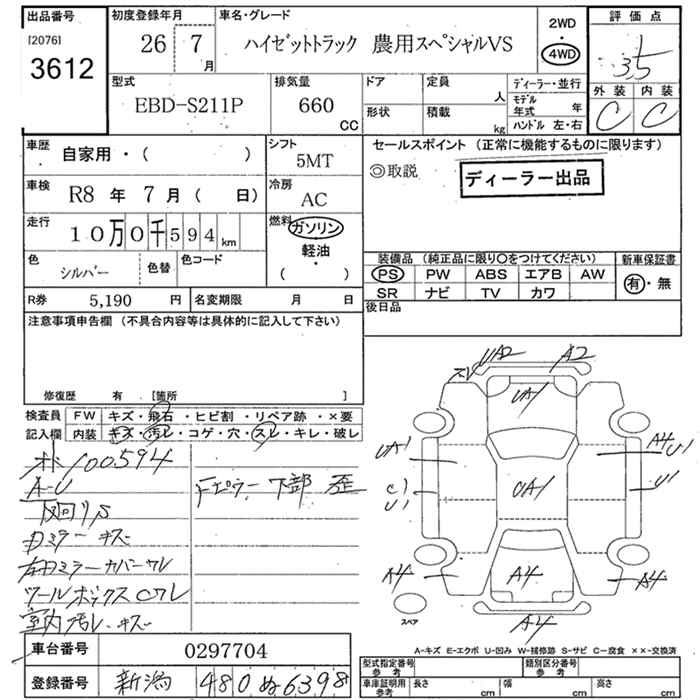 出品番号
[2076]
3612
初度登録年月
26 7月
車名・グレード
ハイゼットトラック 農用スペシャルVS
2WD
4WD
評価点
3.5
外装 内装
C C
型式
EBD-S211P
排気量
660 CC
ドア
形状
定員 人
積載 kg
ディーラー・並行
モデル年式 年
ハンドル 左・右
車歴 自家用・( )
シフト 5MT
車検 R8 年 7 月 ( 日)
冷房 AC
走行 10万0千594km
燃料 ガソリン
軽油・
( )
色 シルバー 色替 色コード
R券 5,190 円 名変期限 月 日
セールスポイント (正常に機能するものに限ります)
◎取説
ディーラー出品
装備品 (純正品に限り○をつけてください) 新車保証書
PS PW ABS エアB AW 有・無
SR ナビ TV カワ
後日品
注意事項申告欄 (不具合内容等は具体的に記入して下さい)
修復歴 有 [箇所 ]
検査員記入欄
FW キズ・飛石・ヒビ割・リペア跡・×要
内装 キズ・汚レ・コゲ・穴・スレ・キレ・破レ
100594
Fピラー下部 歪
ミラー キズ
ミラーカバーワレ
ツールボックスCワレ
室内汚レ、キズ
UA2 A2
UA1
UA1 A4 U1
C1 UA1 U1
U1
A4 A4 A4
A4
スペア
A-キズ E-エクボ U-凹み W-補修跡 S-サビ C-腐食 ××-交換済
車台番号 0297704
登録番号 新潟 480 ぬ 6398
型式指定番号 参考 類別区分番号 参考
車庫証明用 参考 長さ cm 幅 cm 高さ cm